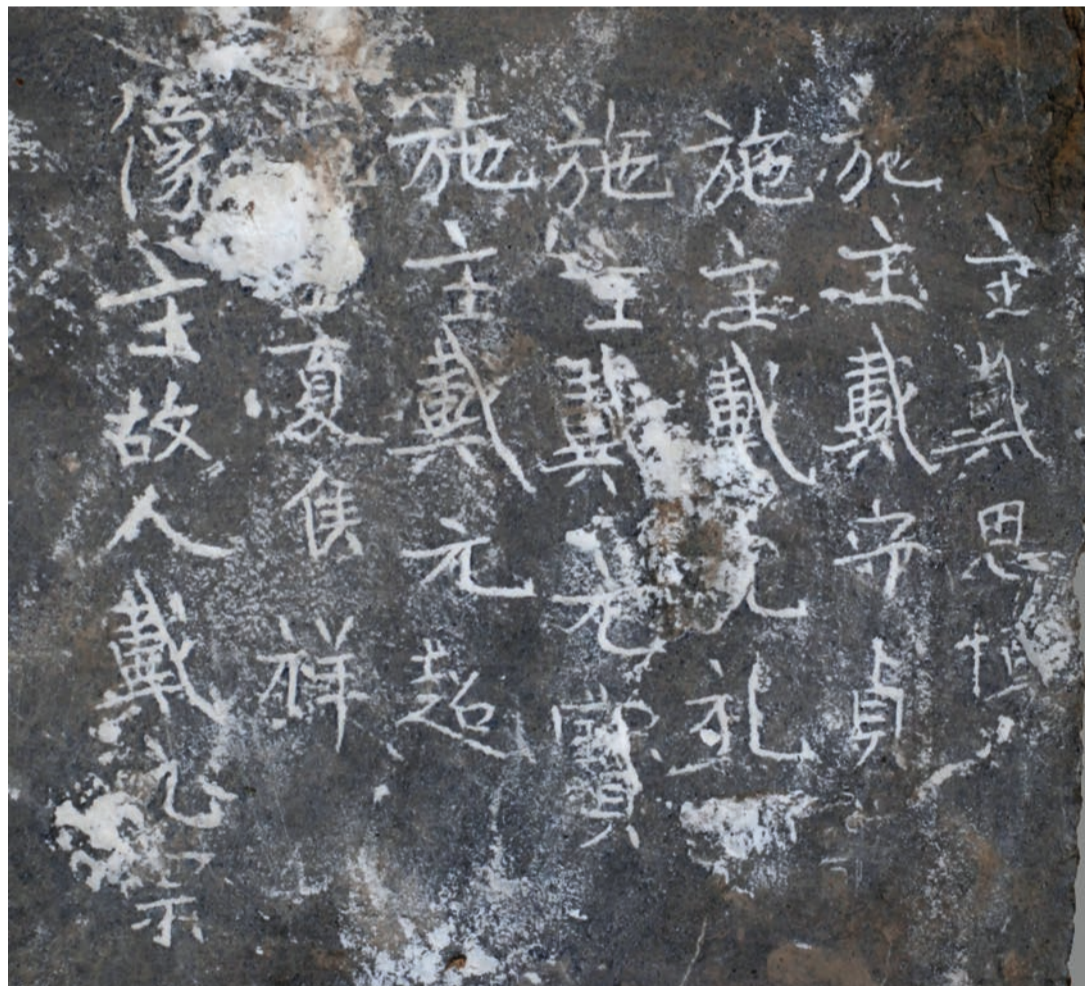 主戴思恒
施主戴守貞
施主戴元礼
施主戴元寳
施主戴元超
主夏侯祥
像主故人戴元宗